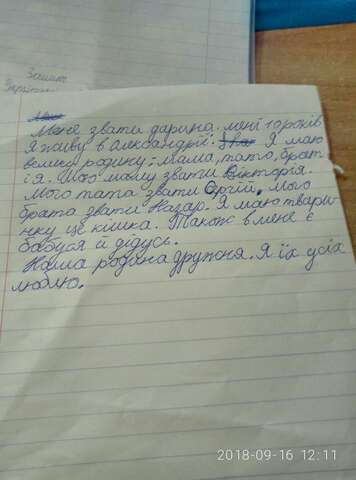 Зошит
Мене звати дарина. мені 10 років
Я живу в Олександрії. Я маю
велику родину: мама, тато, брат
і я. Мою маму звати Вікторія.
Мого тата звати Сргій. мого
брата звати Назар. Я маю твари-
нку це кішка. Також в мене є
бабуся й дідусь.
Наша родина дружня. Я їх усіх
люблю.
2018-09-16 12:11